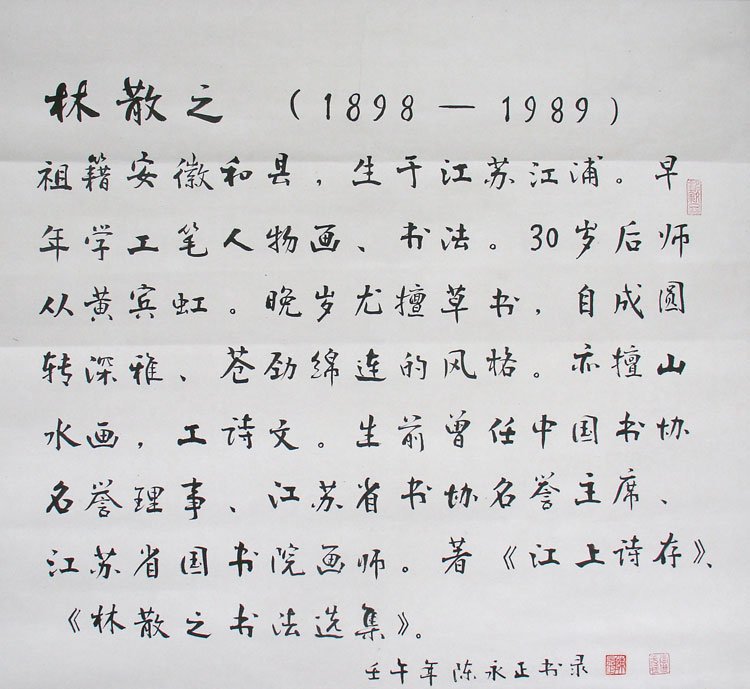 林散之 (1898—1989)
祖籍安徽和县，生于江苏江浦。早
年学工笔人物画、书法。30岁后师
从黄宾虹。晚岁尤擅草书，自成圆
转深雅、苍劲绵连的风格。亦擅山
水画，工诗文。生前曾任中国书协
名誉理事、江苏省书协名誉主席、
江苏省国书院画师。著《江上诗存》、
《林散之书法选集》。
壬午年陈永正书录